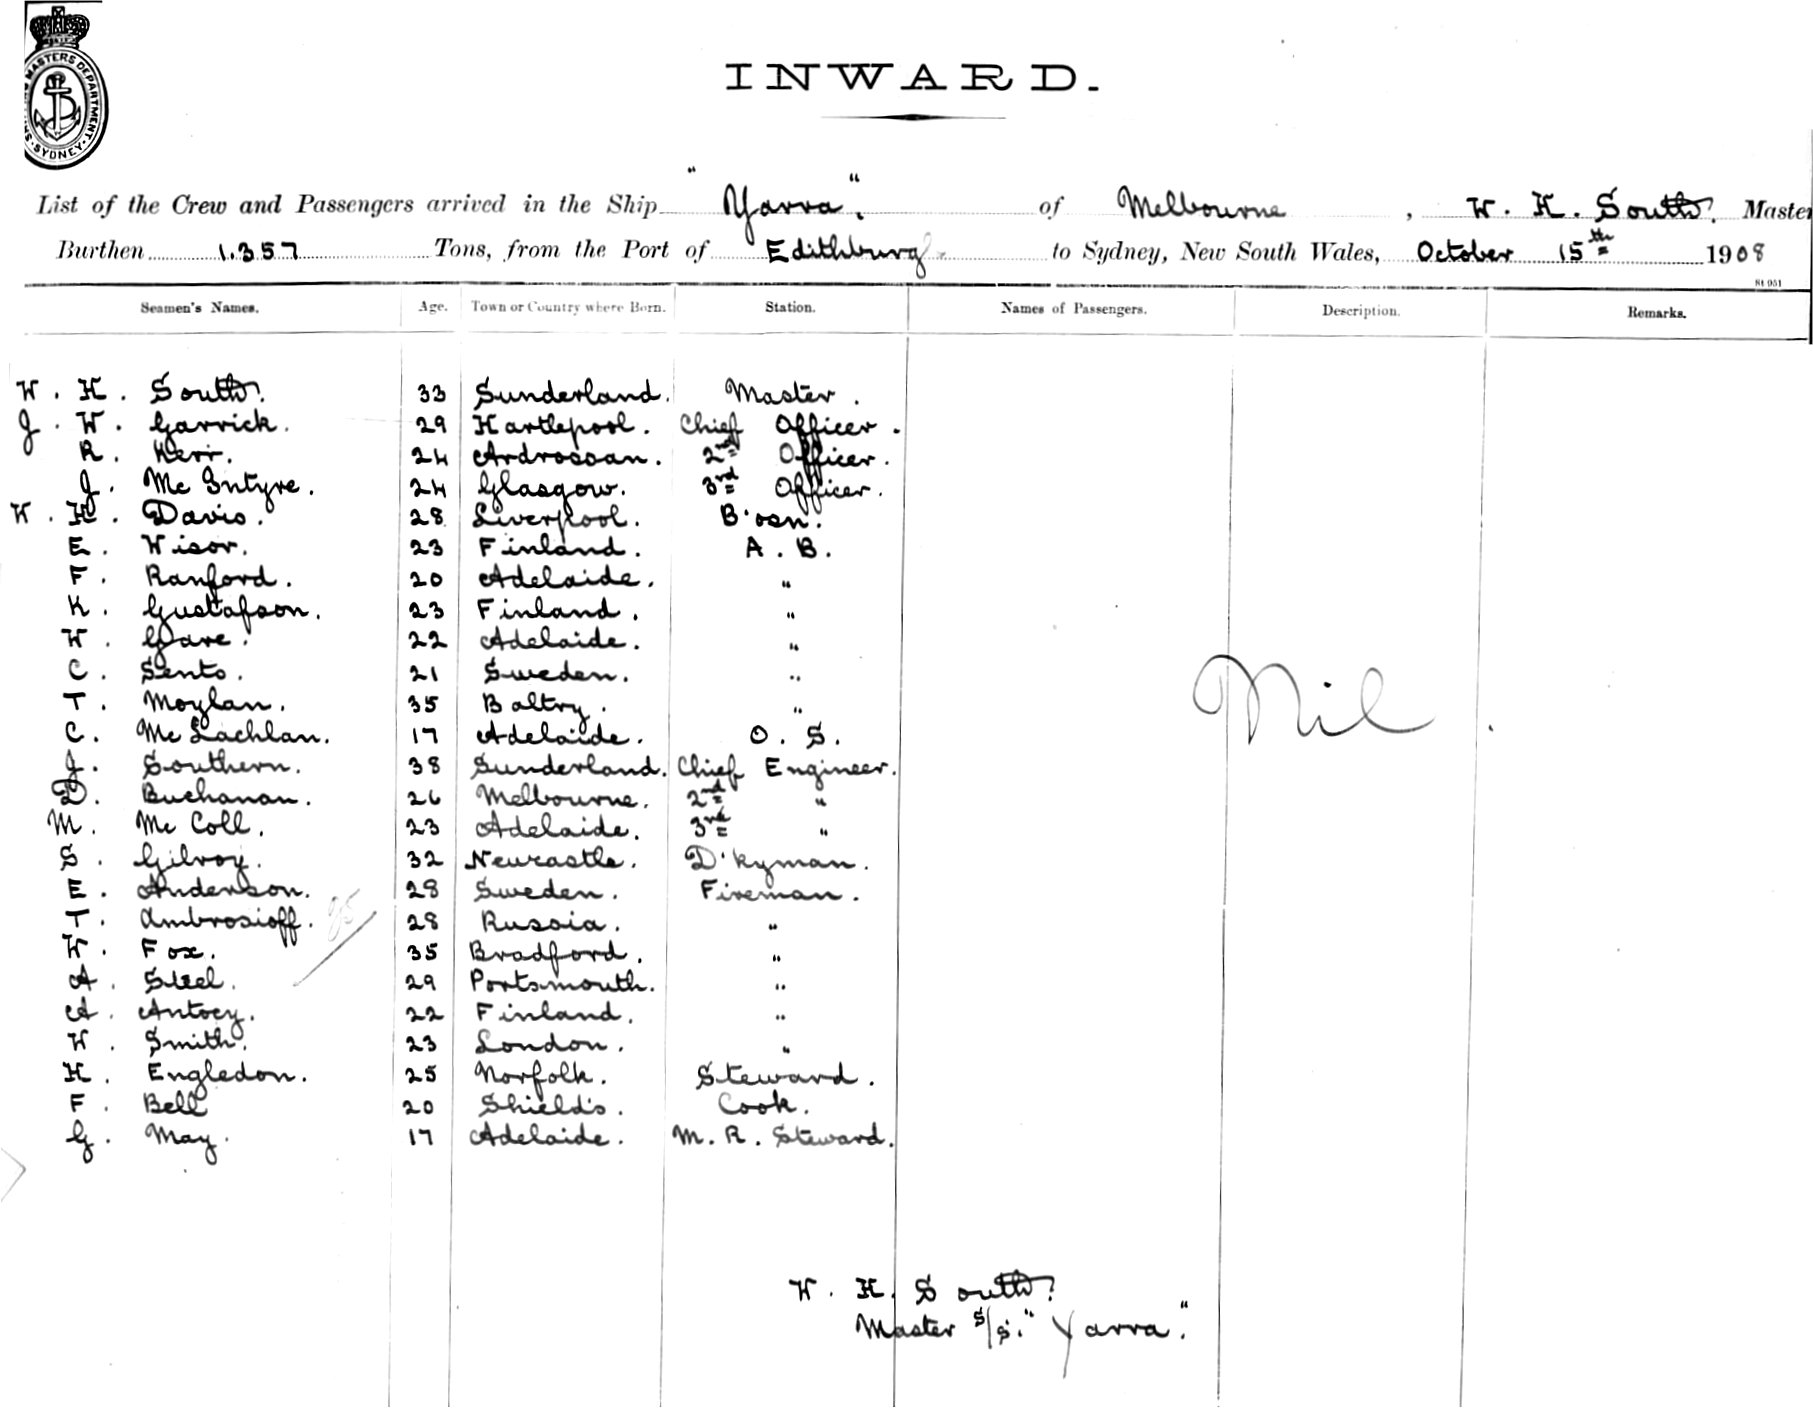 SHIPPING MASTERS DEPARTMENT. SYDNEY.
INWARD.
List of the Crew and Passengers arrived in the Ship "Yarra". of Melbourne, W. H. South. Master
Burthen 1.357 Tons, from the Port of Edithburg to Sydney, New South Wales, October 15th 1908
St 951
Seamen's Names. Age. Town or Country where Born. Station. Names of Passengers. Description. Remarks.
W. H. South. 33 Sunderland. Master.
J. W. Garrick. 29 Hartlepool. Chief Officer.
R. Kerr. 24 Ardrossan. 2nd Officer.
J. Mc Intyre. 24 Glasgow. 3rd Officer.
W. H. Davis. 28 Liverpool. B'osn.
E. Wisor. 23 Finland. A. B.
F. Ranford. 20 Adelaide. "
K. Gustafson. 23 Finland. "
W. Gare. 22 Adelaide. "
C. Sento. 21 Sweden. "
T. Moylan. 35 Baltry. "
Nil.
C. Mc Lachlan. 17 Adelaide. O. S.
J. Southern. 38 Sunderland. Chief Engineer.
D. Buchanan. 26 Melbourne. 2nd "
M. Mc Coll. 23 Adelaide. 3rd "
S. Gilroy. 32 Newcastle. D'kyman.
E. Anderson. 28 Sweden. Fireman.
T. Ambrosioff. 28 Russia. "
W. Fox. 35 Bradford. "
A. Steel. 29 Portsmouth. "
A. Antoey. 22 Finland. "
W. Smith. 23 London. "
H. Engledon. 25 Norfolk. Steward.
F. Bell 20 Shields. Cook.
G. May. 17 Adelaide. M. R. Steward.
W. H. South.
Master s/s. "Yarra".